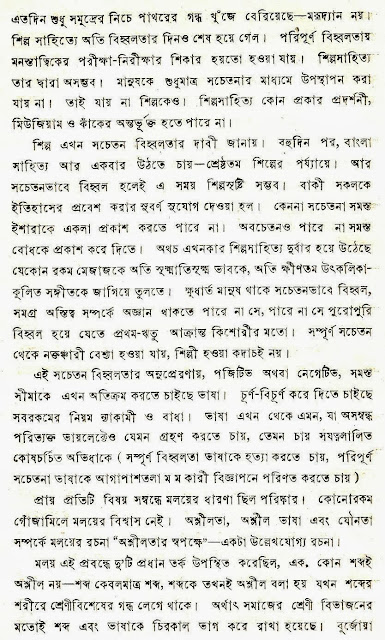 এতদিন শুধু সমুদ্রের নিচে পাথরের গন্ধ খুঁজে বেরিয়েছে—মরূদ্যান নয়।
শিল্প সাহিত্যে অতি বিহ্বলতার দিনও শেষ হয়ে গেল। পরিপূর্ণ বিহ্বলতায়
মনস্তাত্বিকের পরীক্ষা-নিরীক্ষার শিকার হয়তো হওয়া যায়। শিল্পসাহিত্য
তার দ্বারা অসম্ভব। মানুষকে শুধুমাত্র সচেতনার মাধ্যমে উপস্থাপন করা
যায় না। তাই যায় না শিল্পকেও। শিল্পসাহিত্য কোন প্রকার প্রদর্শনী,
মিউজিয়াম ও ফাঁকের অন্তর্ভুক্ত হতে পারে না।
শিল্প এখন সচেতন বিহ্বলতার দাবী জানায়। বহুদিন পর, বাংলা
সাহিত্য আর একবার উঠতে চায়—শ্রেষ্ঠতম শিল্পের পর্য্যায়ে। আর
সচেতনভাবে বিহ্বল হলেই এ সময় শিল্পসৃষ্টি সম্ভব। বাকী সকলকে
ইতিহাসের প্রবেশ করার সুবর্ণ সুযোগ দেওয়া হল। কেননা সচেতনা সমস্ত
ইশারাকে একলা প্রকাশ করতে পারে না। অবচেতনও পারে না সমস্ত
বোধকে প্রকাশ করে দিতে। অথচ এখনকার শিল্পসাহিত্য দুর্বার হয়ে উঠেছে
যেকোন রকম মেজাজকে অতি সূক্ষ্মাতিসূক্ষ্ম ভাবকে, অতি ক্ষীণতম উৎকলিকা-
কূলিত সঙ্গীতকে জাগিয়ে তুলতে। ক্ষুধার্ত মানুষ থাকে সচেতনভাবে বিহ্বল,
সমগ্র অস্তিত্ব সম্পর্কে অজ্ঞান থাকতে পারে না সে, পারে না সে পুরোপুরি
বিহ্বল হয়ে যেতে প্রথম-ঋতু আক্রান্ত কিশোরীর মতো। সম্পূর্ণ সচেতন
থেকে নক্তঞ্চারী বেশ্যা হওয়া যায়, শিল্পী হওয়া কদাচই নয়।
এই সচেতন বিহ্বলতার অনুপ্রেরণায়, পজিটিভ অথবা নেগেটিভ, সমস্ত
সীমাকে এখন অতিক্রম করতে চাইছে ভাষা। চূর্ণ-বিচূর্ণ করে দিতে চাইছে
সবরকমের নিয়ম ন্যাকামী ও বাধা। ভাষা এখন থেকে এমন, যা অসম্বন্ধ
পরিত্যক্ত ডায়লেক্টেও যেমন গ্রহণ করতে চায়, তেমন চায় সযত্নলালিত
কোষচর্চিত অভিধাকে ( সম্পূর্ণ বিহ্বলতা ভাষাকে হত্যা করতে চায়, পরিপূর্ণ
সচেতনা ভাষাকে আগাপাশতলা ম ম কারী বিজ্ঞাপনে পরিণত করতে চায় )
প্রায় প্রতিটি বিষয় সম্বন্ধে মলয়ের ধারণা ছিল পরিষ্কার। কোনোরকম
গোঁজামিলে মলয়ের বিশ্বাস নেই। অশ্লীলতা, অশ্লীল ভাষা এবং যৌনতা
সম্পর্কে মলয়ের রচনা “অশ্লীলতার স্বপক্ষে”—একটা উল্লেখযোগ্য রচনা।
মলয় এই প্রবন্ধে দু'টি প্রধান তর্ক উপস্থিত করেছিল, এক, কোন শব্দই
অশ্লীল নয়—শব্দ কেবলমাত্র শব্দ, শব্দকে তখনই অশ্লীল বলা হয় যখন শব্দের
শরীরে শ্রেণীবিশেষের গন্ধ লেগে থাকে। অর্থাৎ সমাজের শ্রেণী বিভাজনের
মতোই শব্দ এবং ভাষাকে চিরকাল ভাগ করে রাখা হয়েছে। বুর্জোয়া